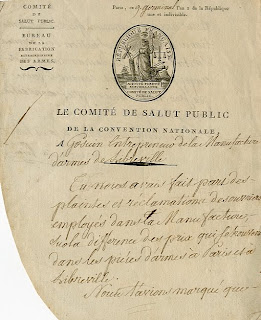 COMITÉ
DE
SALUT PUBLIC.
BUREAU
DE LA
FABRICATION
DES ARMES.
Paris, ce germinal l'an 2 de la République
une et indivisible.
LE COMITÉ DE SALUT PUBLIC
DE LA CONVENTION NATIONALE,
A Gosuin Entrepreneur de la Manufacture
d'armes de Libreville.
Tu nous avais fait part des
plaintes et réclamations des ouvriers
employés dans ta Manufacture,
sur la différence des prix qui se trouvent
dans les pièces d'armes à Paris et à
Libreville.
Nous t'avions marqué que